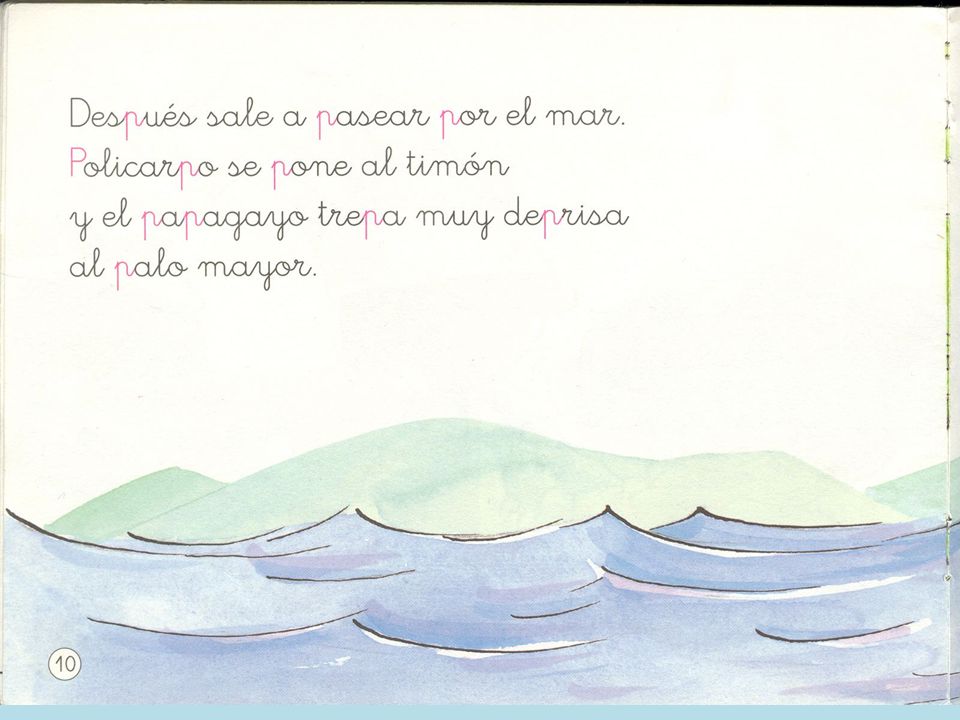 Después sale a pasear por el mar.
Policarpo se pone al timón
y el papagayo trepa muy deprisa
al palo mayor.
10